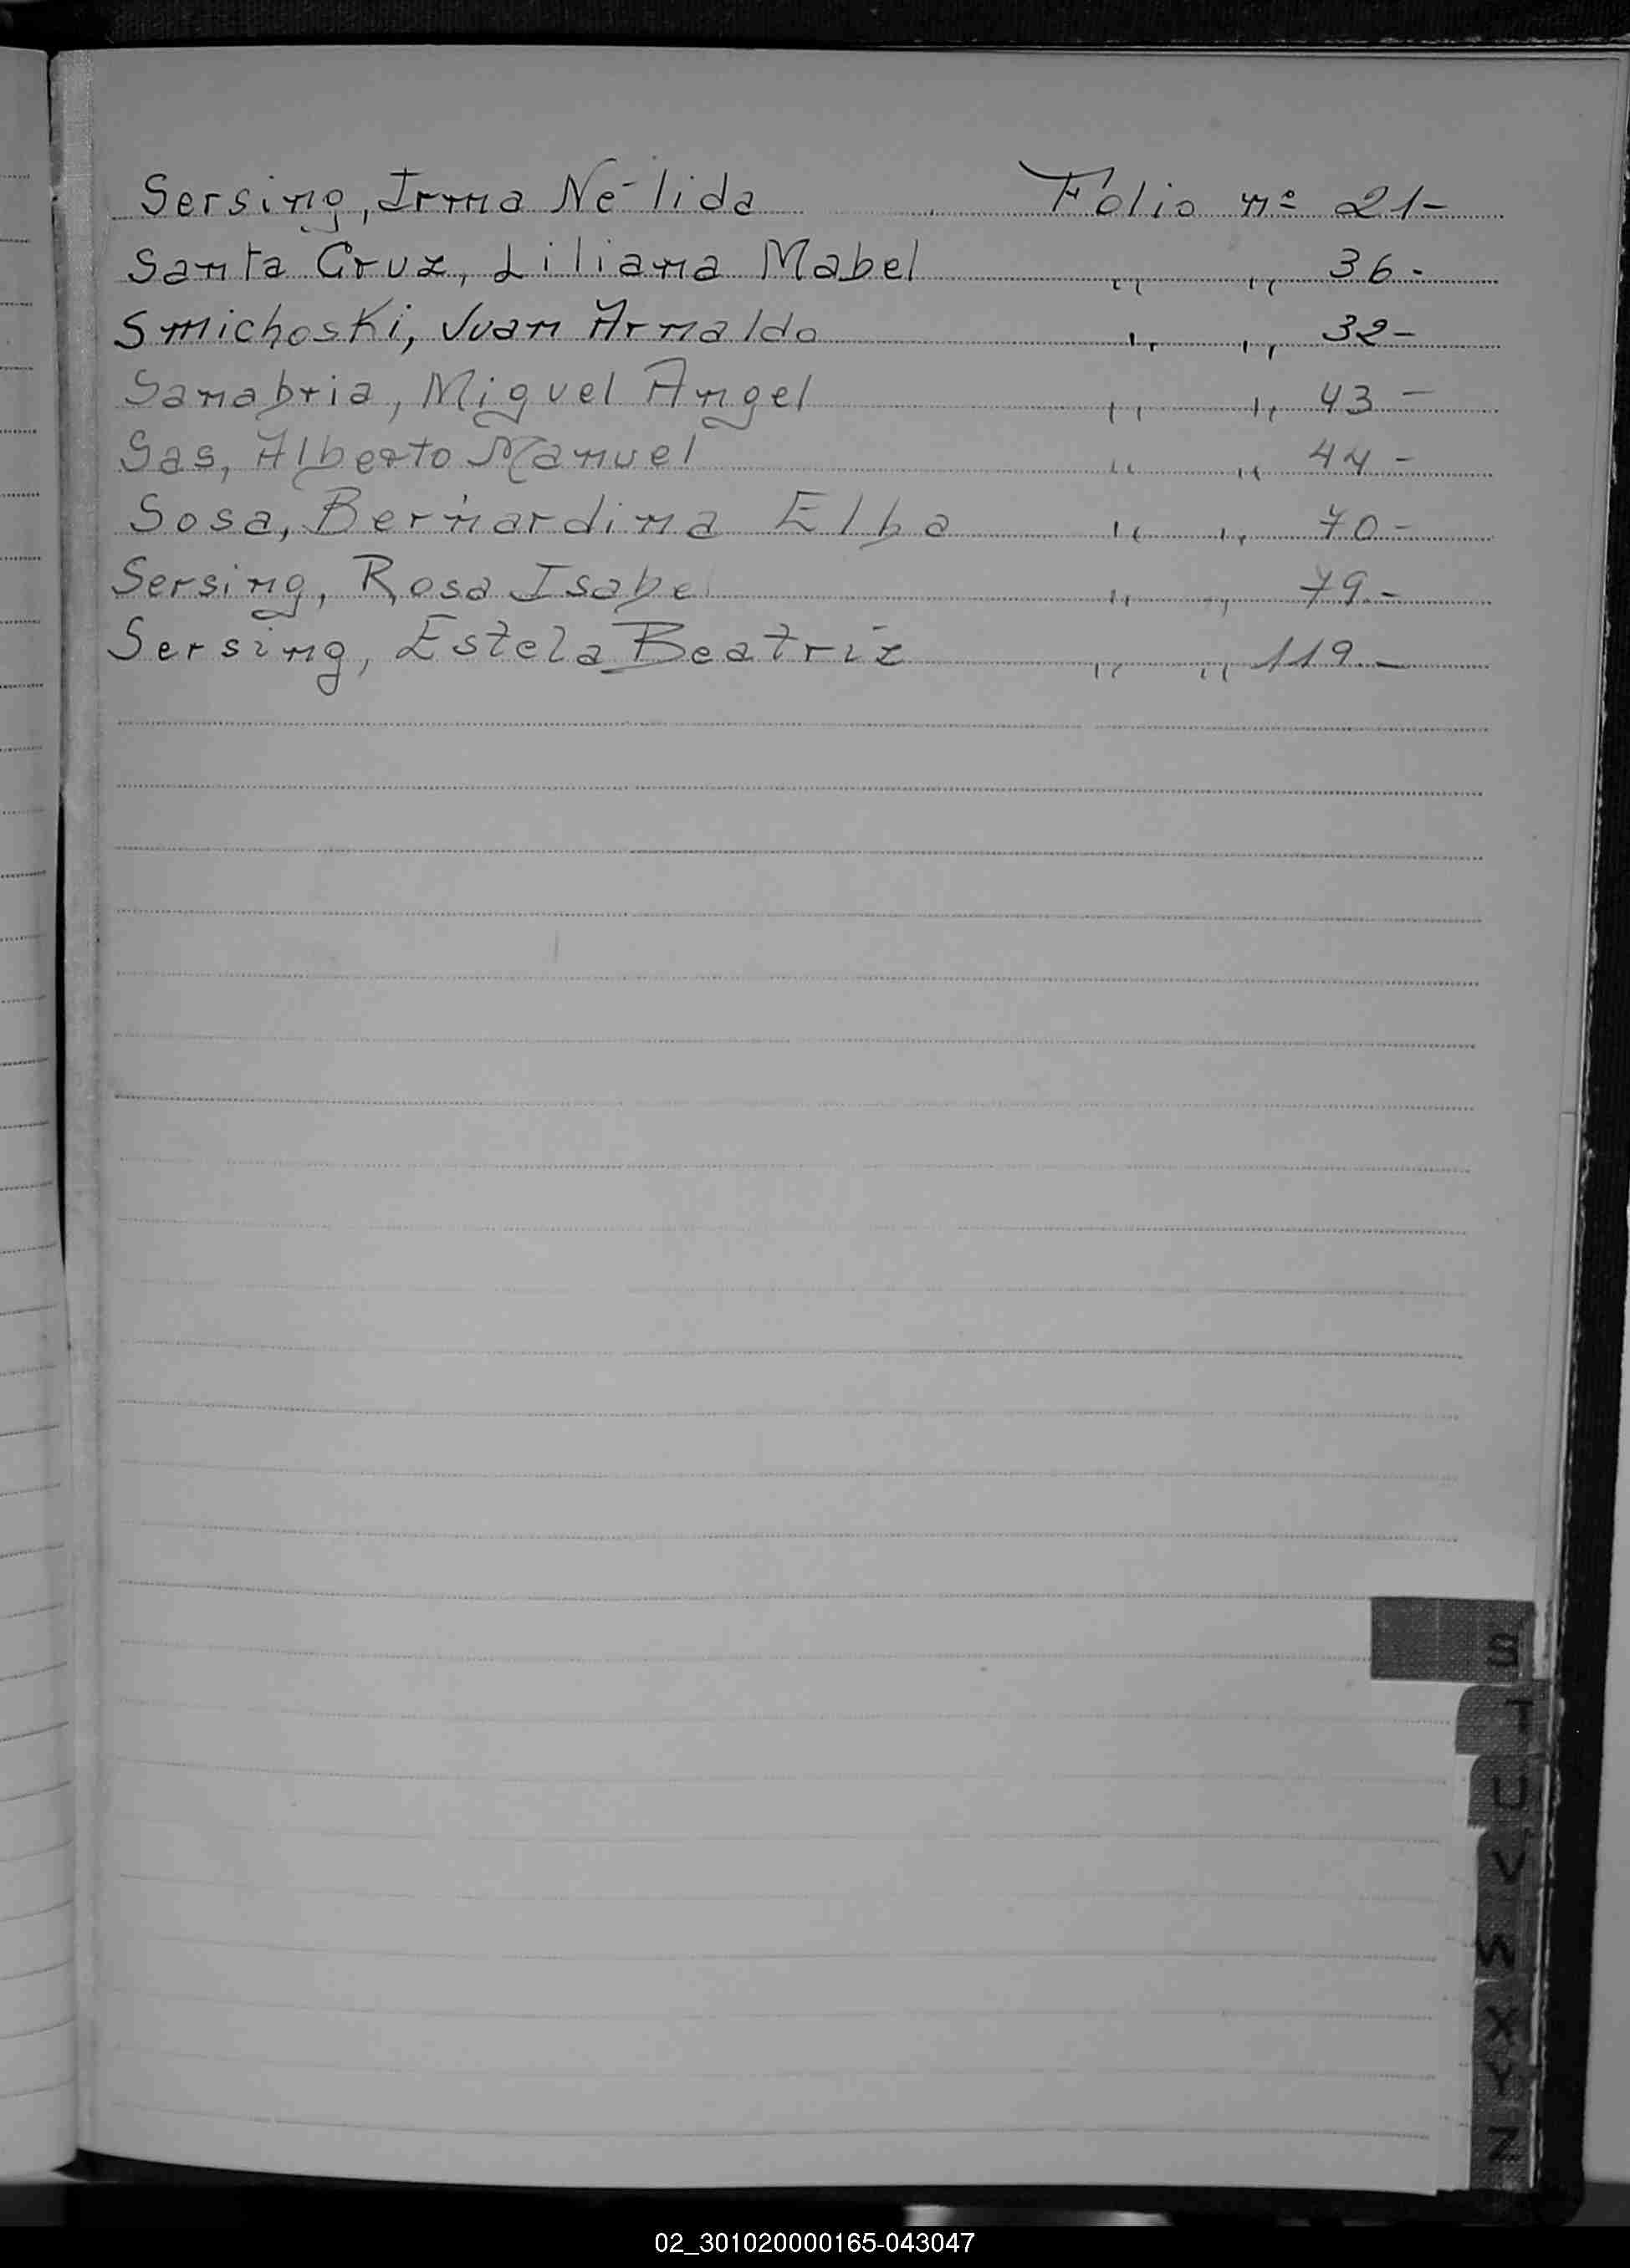 Sersing, Irma Nélida Folio nº 21-
Santa Cruz, Liliana Mabel ,, ,, 36-
Smichoski, Juan Arnaldo ,, ,, 32-
Sanabria, Miguel Angel ,, ,, 43-
Sas, Alberto Manuel ,, ,, 44-
Sosa, Bernardina Elba ,, ,, 70-
Sersing, Rosa Isabel ,, ,, 79-
Sersing, Estela Beatriz ,, ,, 119-
S
T
U
V
W
X
Y
Z
02_301020000165-043047